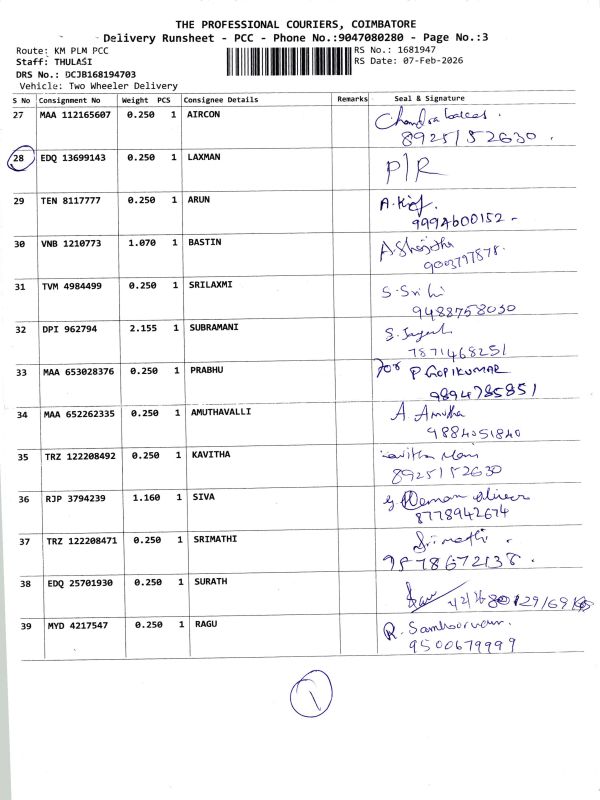 THE PROFESSIONAL COURIERS, COIMBATORE
Delivery Runsheet - PCC - Phone No.:9047080280 - Page No.:3
Route: KM PLM PCC
RS No.: 1681947
Staff: THULASI
RS Date: 07-Feb-2026
DRS No.: DCJB168194703
Vehicle: Two Wheeler Delivery
S No Consignment No Weight PCS Consignee Details Remarks Seal & Signature
27 MAA 112165607 0.250 1 AIRCON
8925152630.
28 EDQ 13699143 0.250 1 LAXMAN P/R
29 TEN 8117777 0.250 1 ARUN
30 VNB 1210773 1.070 1 BASTIN
9003797878.
31 TVM 4984499 0.250 1 SRILAXMI
9488758030
32 DPI 962794 2.155 1 SUBRAMANI
7871468251
33 MAA 653028376 0.250 1 PRABHU For P GOPIKUMAR
9894785851
34 MAA 652262335 0.250 1 AMUTHAVALLI A Amutha
9884051840
35 TRZ 122208492 0.250 1 KAVITHA
8925152630
36 RJP 3794239 1.160 1 SIVA
8778942674
37 TRZ 122208471 0.250 1 SRIMATHI Srimathi.
9578672138.
38 EDQ 25701930 0.250 1 SURATH
39 MYD 4217547 0.250 1 RAGU R.
9500679999
1